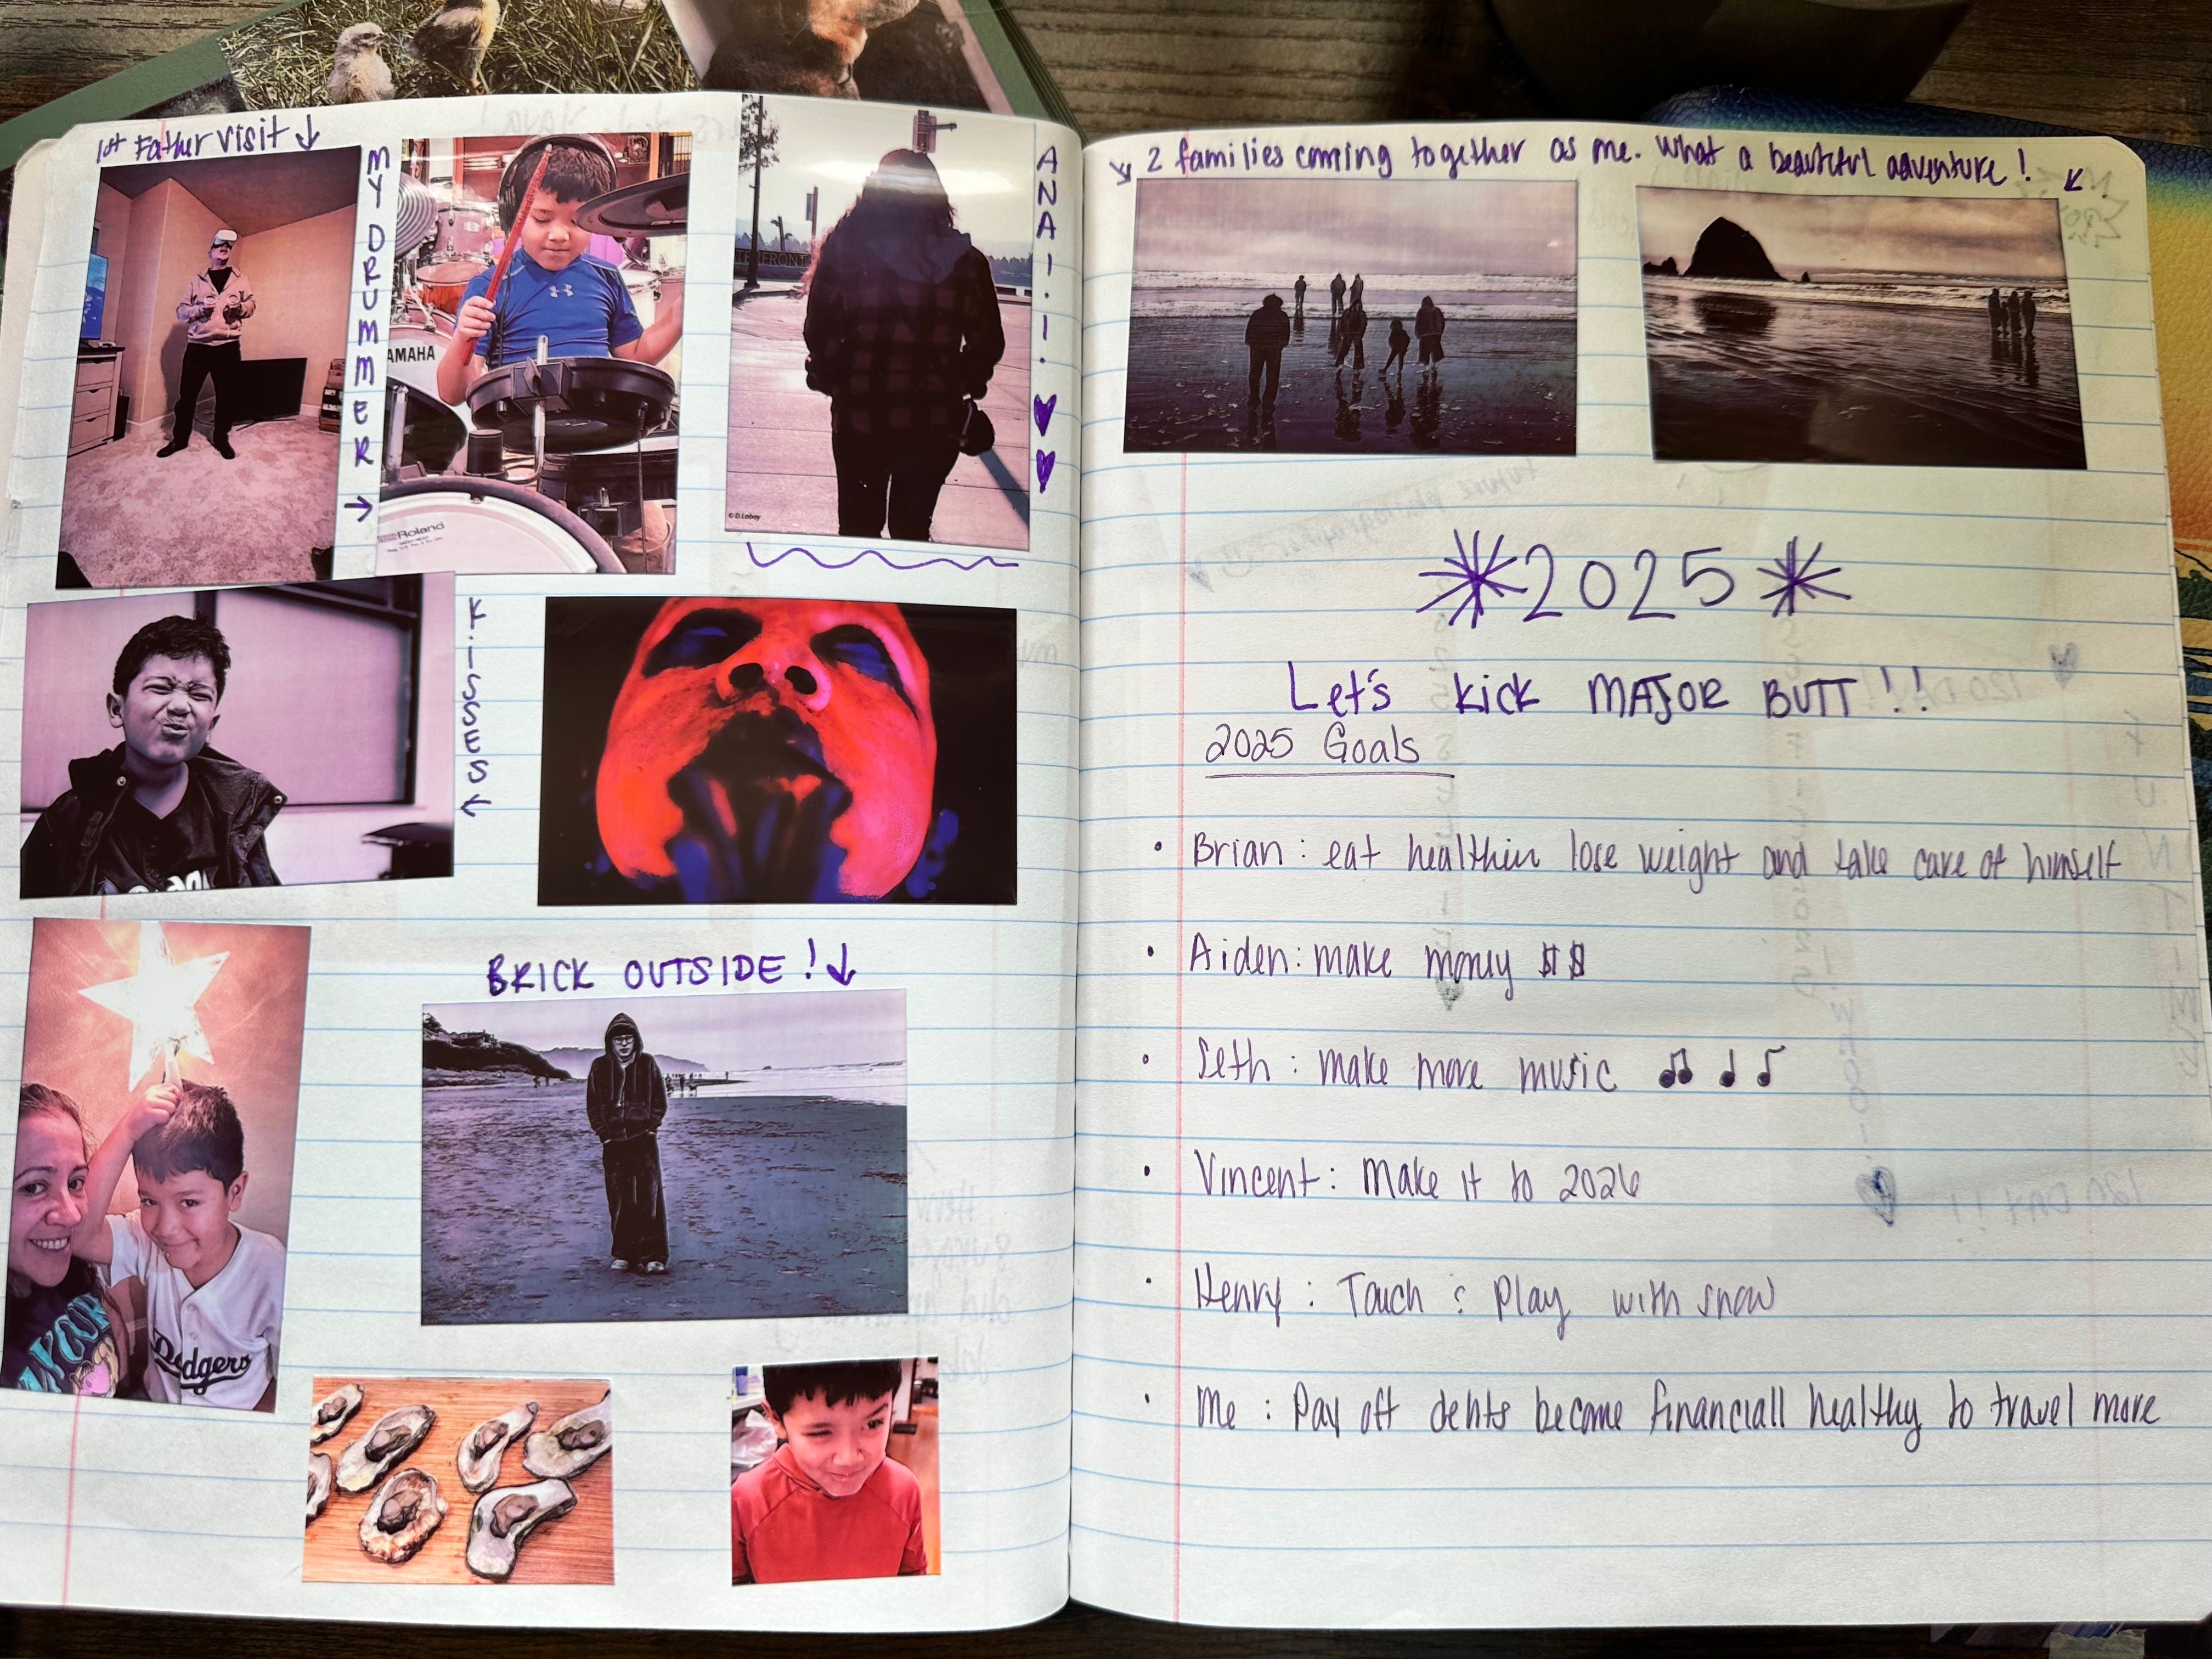 1st Father Visit ↓
MY DRUMMER →
AMAHA
Roland
ANAI.I. ♥ ♥
ERFRONT
© D.Lebey
KISSES ←
BRICK OUTSIDE! ↓
Dodgers
2 families coming together as me. What a beautiful adventure!
2025
Let's kick MAJOR BUTT!!
2025 Goals
• Brian: eat healthier lose weight and take care of himself
• Aiden: make money $$
• Seth: make more music ♫ ♩ ♪
• Vincent: Make it to 2026
• Henry: Touch & Play with snow
• Me: Pay off debts become financiall healthy to travel more